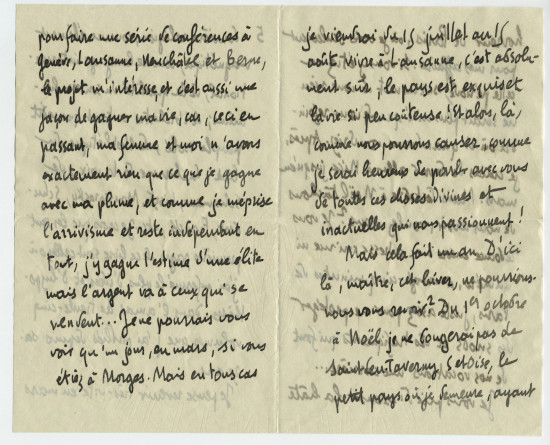 pour faire une série de conférences à
Genève, Lausanne, Neuchâtel et Berne,
le projet m'intéresse, et c'est aussi une
façon de gagner ma vie, car, ceci en
passant, ma femme et moi n'avons
exactement rien que ce que je gagne
avec ma plume, et comme je méprise
l'arrivisme et reste indépendant en
tout, j'y gagne l'estime d'une élite
mais l'argent va à ceux qui se
vendent... Je ne pourrais vous
voir qu'un jour, en mars, si vous
étiez à Morges. Mais en tous cas
je viendrai du 15 juillet au 15
août vivre à Lausanne, c'est absolu-
ment sûr, le pays est exquis et
la vie si peu coûteuse! Et alors, là,
comme nous pourrons causer, comme
je serai heureux de parler avec vous
de toutes ces choses divines et
inactuelles qui nous passionnent!
Mais cela fait un an. D'ici
là, maître, cet hiver, ne pourrions-
nous vous revoir? Du 1er octobre
à Noël je ne bougerai pas de
Saint-Leu-Taverny, S et Oise, le
petit pays où je demeure, ayant